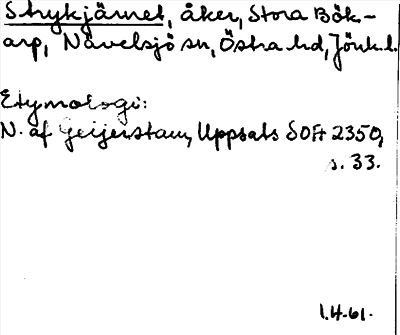 Strykjärnet, åker, Stora Bök-
arp, Nävelsjö sn, Östra hd, Jönk. l.
Etymologi:
N. af Geijerstam, Uppsats SOFt 2350,
s. 33.
1.4.61.